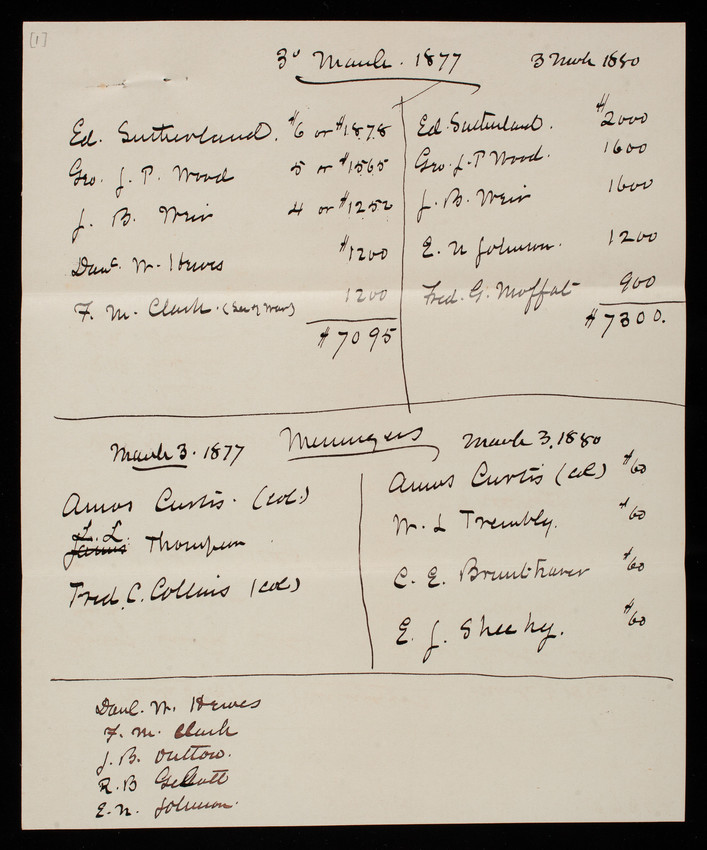 [1]
3d March. 1877
3 Mch 1880
Ed. Sutherland. $6 or $1878
Geo. J. P. Wood 5 or $1565
J. B. Weir 4 or $1252
Danl. W. Hewes $1200
F. M. Clark. (Sec of War) 1200
$7095
Ed. Sutherland. $2000
Geo. J. P Wood. 1600
J. B. Weir 1600
E. N Johnson. 1200
Fred. G. Moffat 900
$7300.
Messengers
March 3. 1877
Amos Curtis. (col.)
L. L.
James Thompson
Fred. C. Collins (col)
March 3, 1880
Amos Curtis (col) $60
W. L Trembly. $60
C. E. $60
E. J. Sheehy. $60
Danl. W. Hewes
F. M. Clark
J. B. Outtow.
R. B
E. N. Johnson.